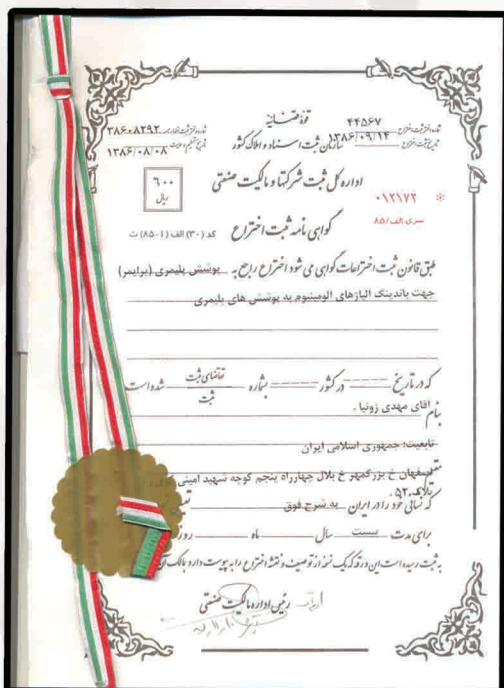 قوهٔ قضائیه
سازمان ثبت اسناد و املاک کشور
شماره دفتر ثبت اختراع ۴۴۵۶۷
تاریخ ثبت اختراع ۱۳۸۶/۰۹/۱۴
شماره دفتر ثبت اظهارنامه ۳۸۶۰۸۲۹۲
تاریخ تسلیم اظهارنامه ۱۳۸۶/۰۸/۰۸
اداره کل ثبت شرکتها و مالکیت صنعتی
۶۰۰
ریال
۰۱۲۱۷۲
سری الف/۸۵
گواهی نامه ثبت اختراع
کد (۳۰) الف (۱-۸۵) ث
طبق قانون ثبت اختراعات گواهی می شود اختراع راجع به پوشش پلیمری (پرایمر)
جهت باندینگ الیاژهای الومینیوم به پوشش های پلیمری
که در تاریخ ------ در کشور ------ بشماره ------ تقاضای ثبت
ثبت
شده است
بنام اقای مهدی زونیا .
تابعیت: جمهوری اسلامی ایران
اصفهان خ بزرگمهر خ بلال چهارراه پنجم کوچه شهید امینی
پلاک ۵۲ .
که نشانی خود را در ایران به شرح فوق
برای مدت بیست سال --- ماه --- روز
به ثبت رسیده است این ورقه که یک نسخه از توصیف و نقشه اختراع را به پیوست دارد بمالک
رئیس اداره مالکیت صنعتی